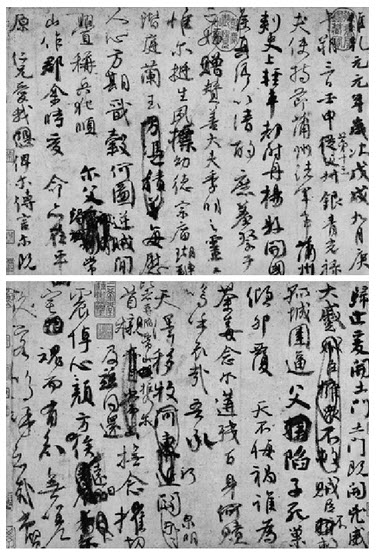 維乾元元年歲次戊戌九月庚
午朔三日壬申第十三從父銀青光祿
夫使持節蒲州諸軍事蒲州
刺史上輕車都尉丹楊縣開國
侯真卿以清酌庶羞祭于
亡姪贈贊善大夫季明之靈曰
惟爾挺生夙標幼德宗廟瑚璉
階庭蘭玉每慰
人心方期戩穀何圖逆賊閒
釁稱兵犯順爾父竭誠常
山作郡余時受命亦在平
原仁兄愛我俾爾傳言爾既
歸止爰開土門土門既開凶威
大蹙賊臣不救
孤城圍逼父陷子死巢
傾卵覆天不悔禍誰為
荼毒念爾遘殘百身何贖
嗚乎哀哉吾承
天澤移牧河關泉明
首櫬及茲同還撫念摧切
震悼心顏方俟遠日
宅魂而有知無嗟
久客嗚呼哀哉尚饗